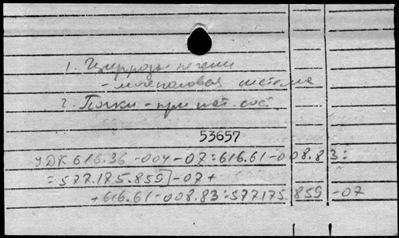 1. Циррозы печени
- мочеполовая система
2. Почки - при пат. сост.
53657
УДК 616.36-004-07:616.61-008.83:
:577.175.859]-07+
+616.61-008.83:577.175.859-07